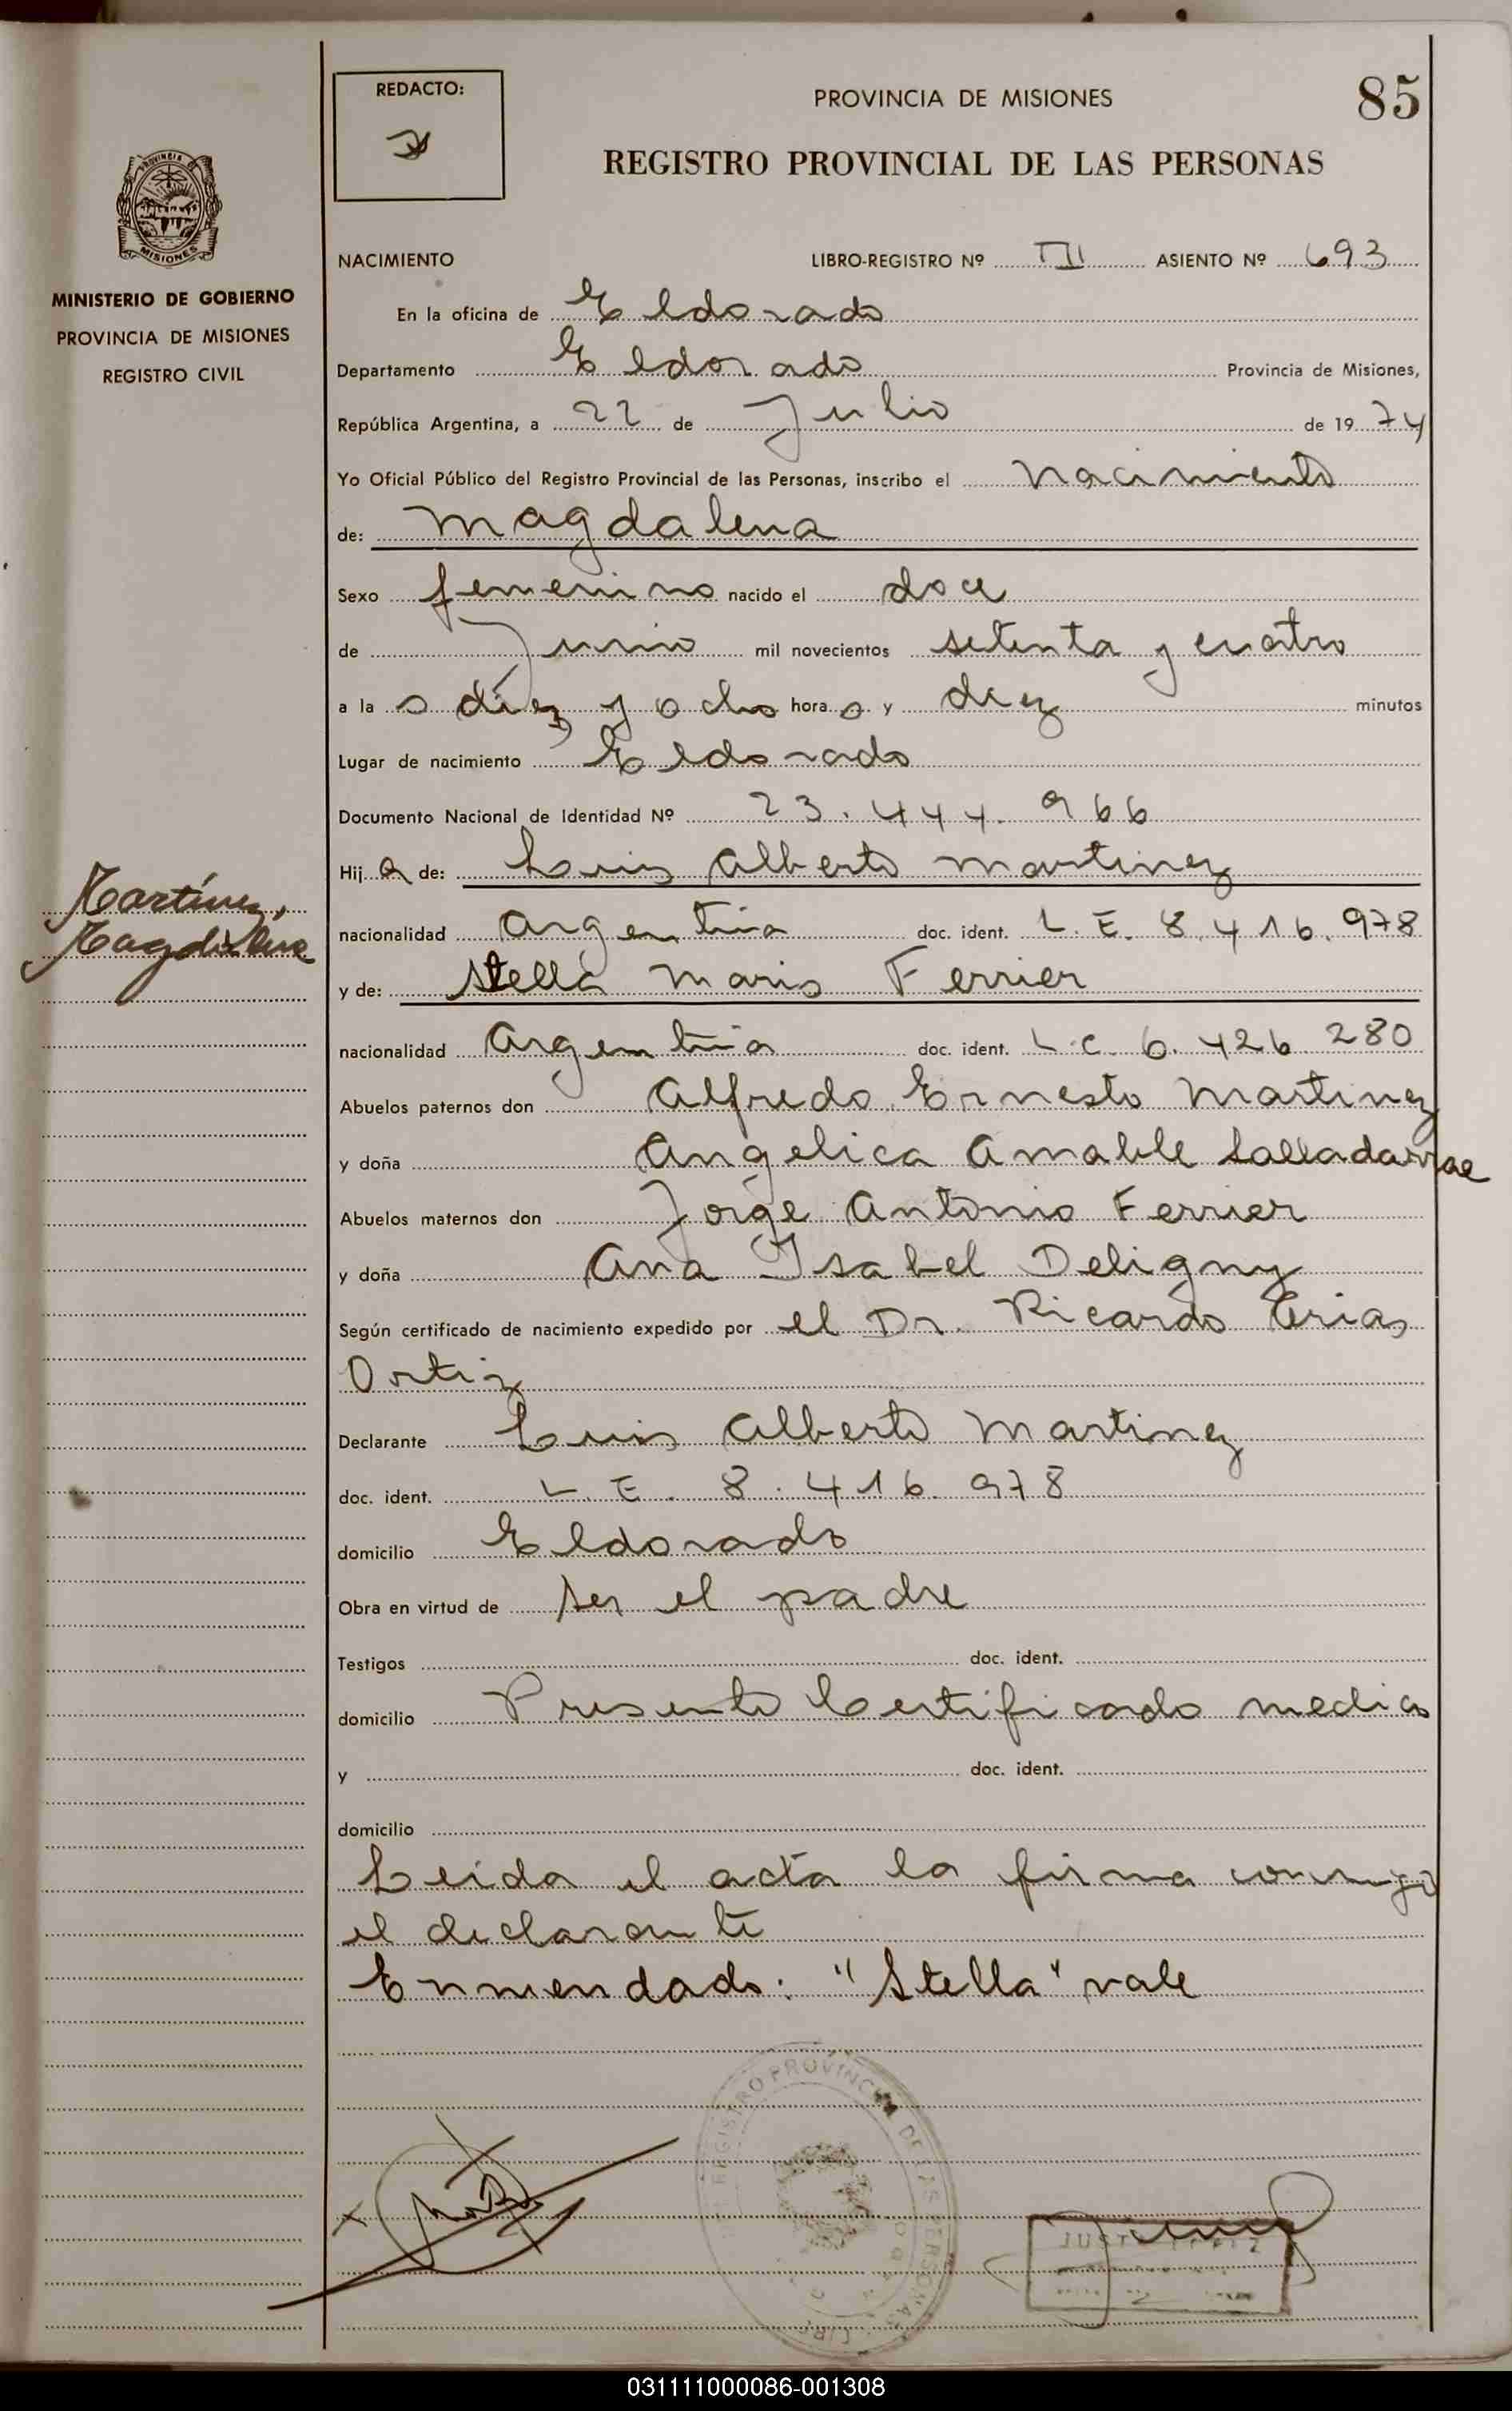 REDACTO:
PROVINCIA DE MISIONES
85
REGISTRO PROVINCIAL DE LAS PERSONAS
PROVINCIA DE
MISIONES
MINISTERIO DE GOBIERNO
PROVINCIA DE MISIONES
REGISTRO CIVIL
NACIMIENTO LIBRO-REGISTRO Nº III ASIENTO Nº 693
En la oficina de Eldorado
Departamento Eldorado Provincia de Misiones,
República Argentina, a 22 de Julio de 1974
Yo Oficial Público del Registro Provincial de las Personas, inscribo el nacimiento
de: Magdalena
Sexo femenino nacido el doce
de Junio mil novecientos setenta y cuatro
a la s diez y ocho hora s y diez minutos
Lugar de nacimiento Eldorado
Documento Nacional de Identidad Nº 23.444.966
Hij a de: Luis Alberto Martinez
Martínez,
Magdalena
nacionalidad Argentina doc. ident. L.E. 8.416.978
y de: Stella Maris Ferrier
nacionalidad Argentina doc. ident. L.C. 6.426.280
Abuelos paternos don Alfredo Ernesto Martinez
y doña Angelica Amable
Abuelos maternos don Jorge Antonio Ferrier
y doña Ana Isabel Deligny
Según certificado de nacimiento expedido por el Dr. Ricardo
Ortiz
Declarante Luis Alberto Martinez
doc. ident. L.E. 8.416.978
domicilio Eldorado
Obra en virtud de ser el padre
Testigos doc. ident.
domicilio Presento Certificado medico
y doc. ident.
domicilio
Leida el acta la firma conmigo
el declarante
Enmendado: "Stella" vale
REGISTRO PROVINCIAL DE LAS PERSONAS
031111000086-001308